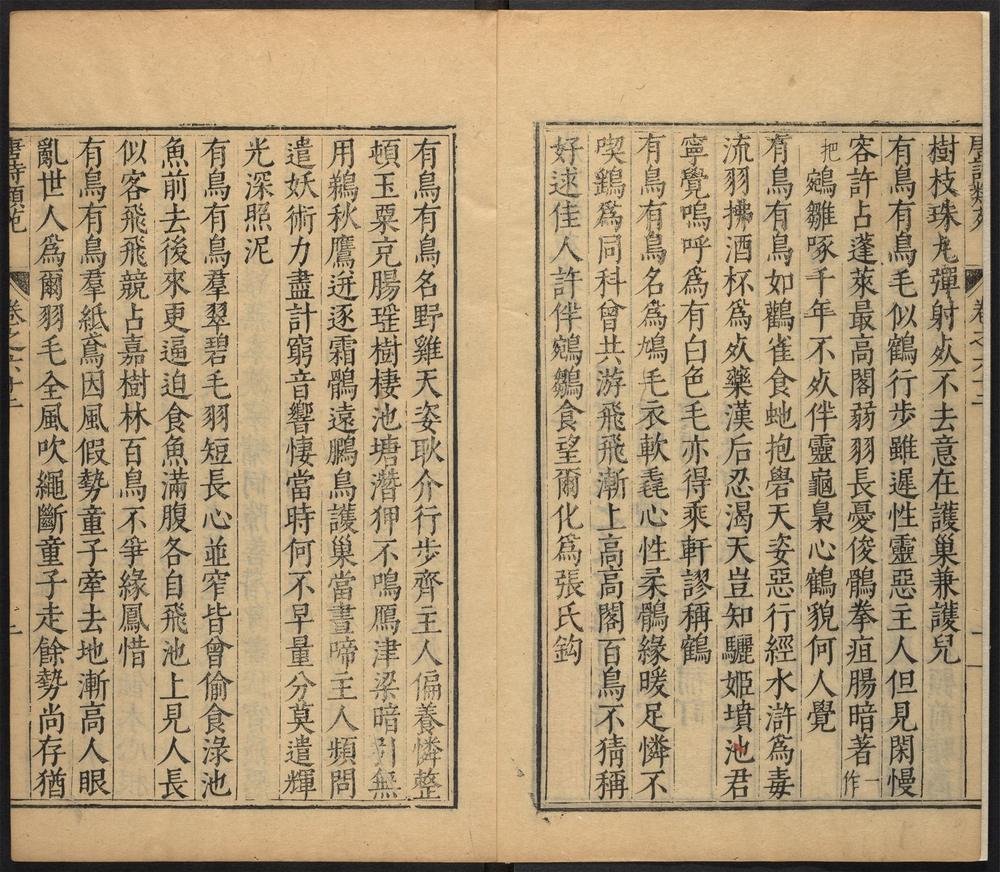 唐詩類苑 卷之六十二
樹枝珠丸彈射死不去意在護巢兼護兒
有鳥有鳥毛似鶴行步雖遲性靈惡主人但見閑慢
容許占蓬萊最高閣弱羽長憂俊鶻拳疽腸暗著一作
把鵷雛啄千年不死伴靈龜梟心鶴貌何人覺
有鳥有鳥如鸛雀食虵抱礐天姿惡行經水滸爲毒
流羽拂酒杯爲死藥漢后忍渴天豈知驪姬墳池君
寧覺嗚呼爲有白色毛亦得乘軒謬稱鶴
有鳥有鳥名爲鳩毛衣軟毳心性柔鶻緣暖足憐不
喫鷂爲同科曾共游飛飛漸上高高閣百鳥不猜稱
好逑佳人許伴鵷鶵食望爾化爲張氏鈎
有鳥有鳥名野雞天姿耿介行步齊主人偏養憐整
頓玉粟充腸瑶樹棲池塘潛狎不鳴鴈津梁暗引無
用鵜秋鷹迸逐霜鶻遠鵩鳥護巢當晝啼主人頻問
遣妖術力盡計窮音響悽當時何不早量分莫遣輝
光深照泥
有鳥有鳥羣翠碧毛羽短長心並窄皆曾偷食淥池
魚前去後來更逼迫食魚滿腹各自飛池上見人長
似客飛飛競占嘉樹林百鳥不爭緣鳳惜
有鳥有鳥羣紙鳶因風假勢童子牽去地漸高人眼
亂世人爲爾羽毛全風吹繩斷童子走餘勢尚存猶
唐詩類苑 卷之六十二